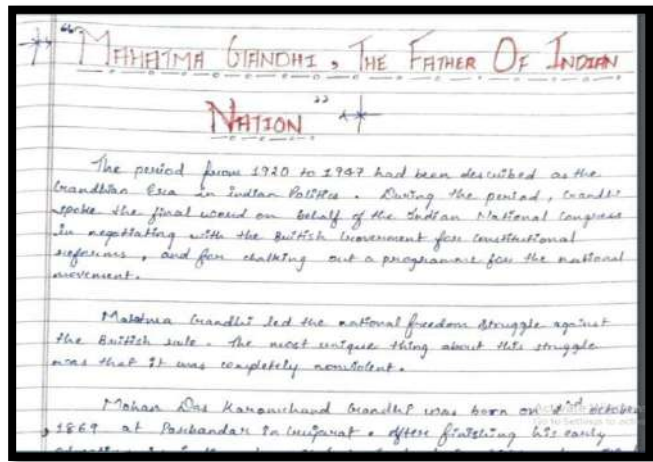 "MAHATMA GANDHI, THE FATHER OF INDIAN
NATION"
The period from 1920 to 1947 had been described as the
Gandhian Era in Indian Politics. During the period, Gandhi
spoke the final word on behalf of the Indian National Congress
in negotiating with the British Government for constitutional
reforms, and for chalking out a programme for the national
movement.
Mahatma Gandhi led the national freedom struggle against
the British rule. The most unique thing about this struggle
was that it was completely nonviolent.
Mohan Das Karamchand Gandhi was born on 2nd October
1869 at Porbandar in Gujarat. After finishing his early